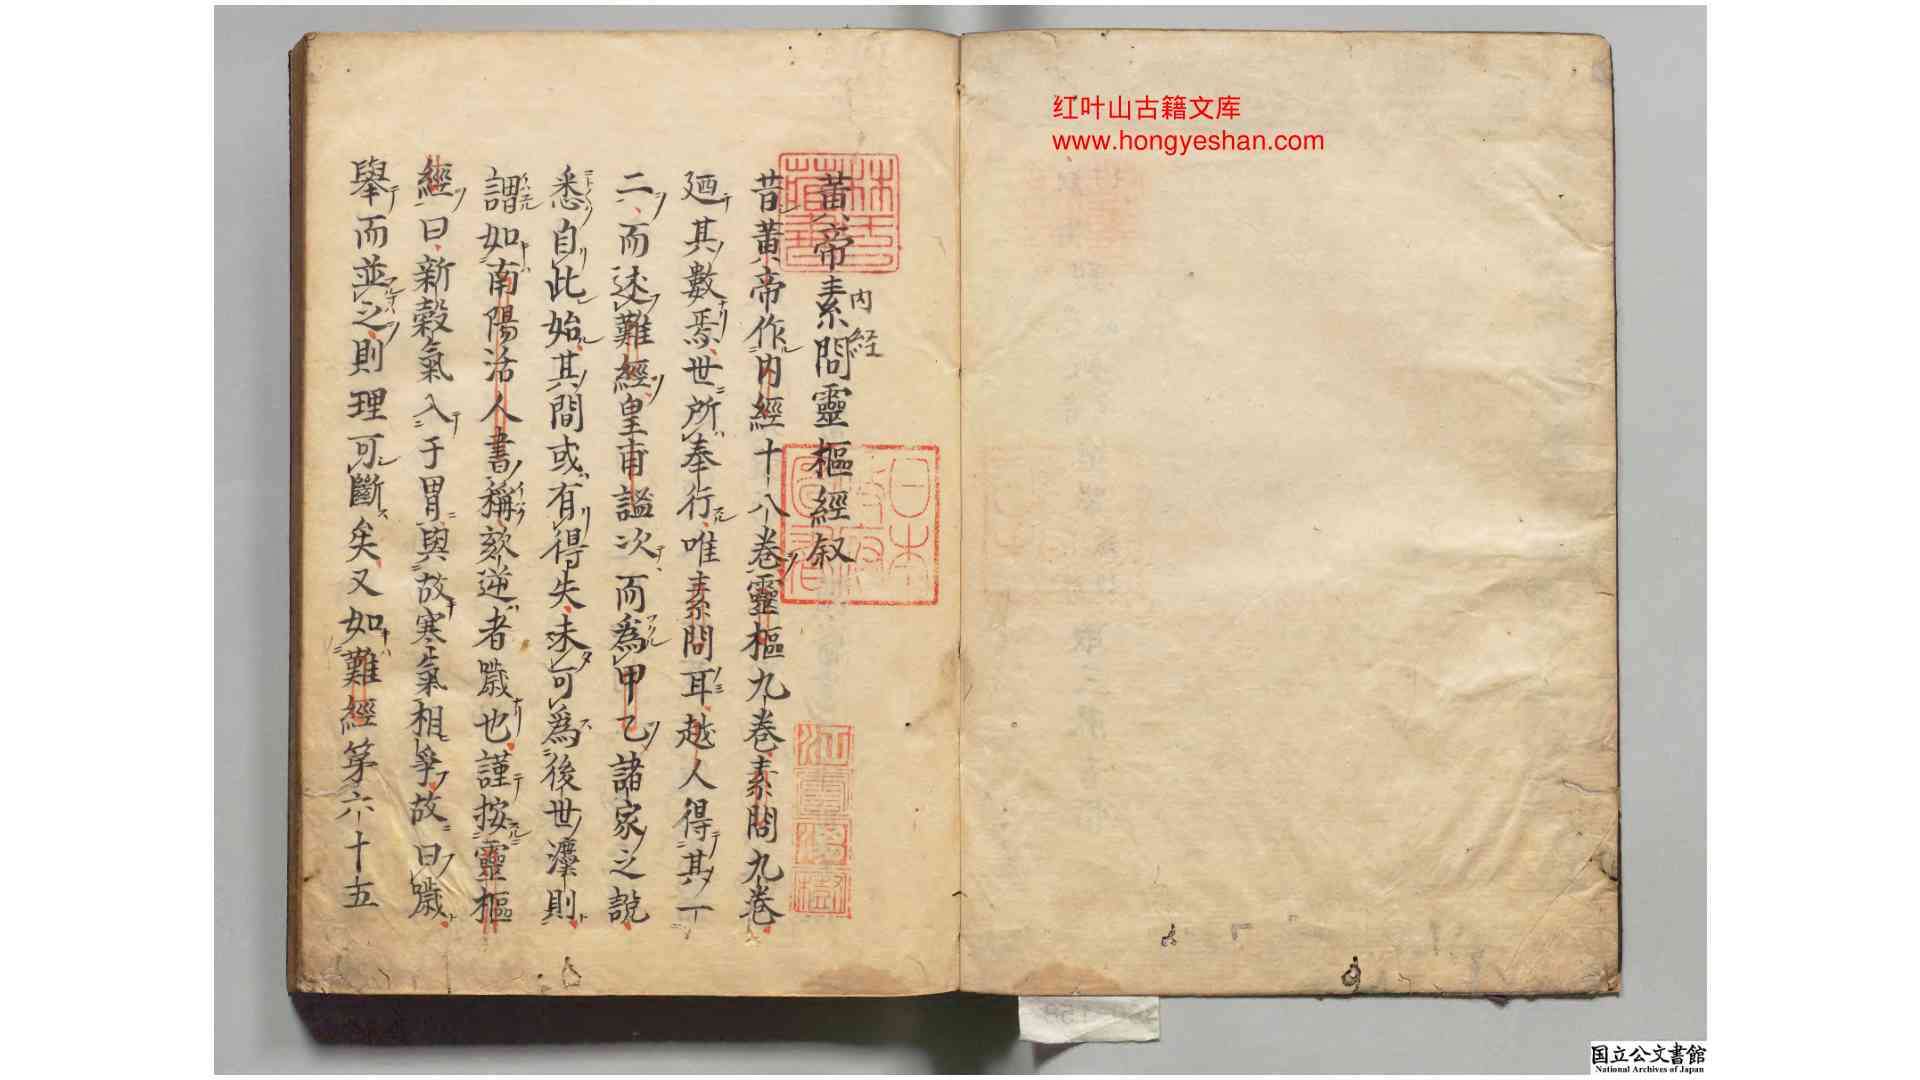 红叶山古籍文库
www.hongyeshan.com
黄帝素問靈樞經叙
内経
昔黄帝作内經十八卷靈樞九卷素問九卷
廼其數焉世所奉行唯素問耳越人得其一
二而述難經皇甫謐次而為甲乙諸家之說
悉自此始其間或有得失未可為後世灋則
謂如南陽活人書稱欬逆者噦也謹按靈樞
經曰新穀氣入于胃與故寒氣相爭故曰噦
舉而並之則理可斷矣又如難經第六十五
林氏
藏書
日本
政府
圖書
江雲渭樹
国立公文書館
National Archives of Japan